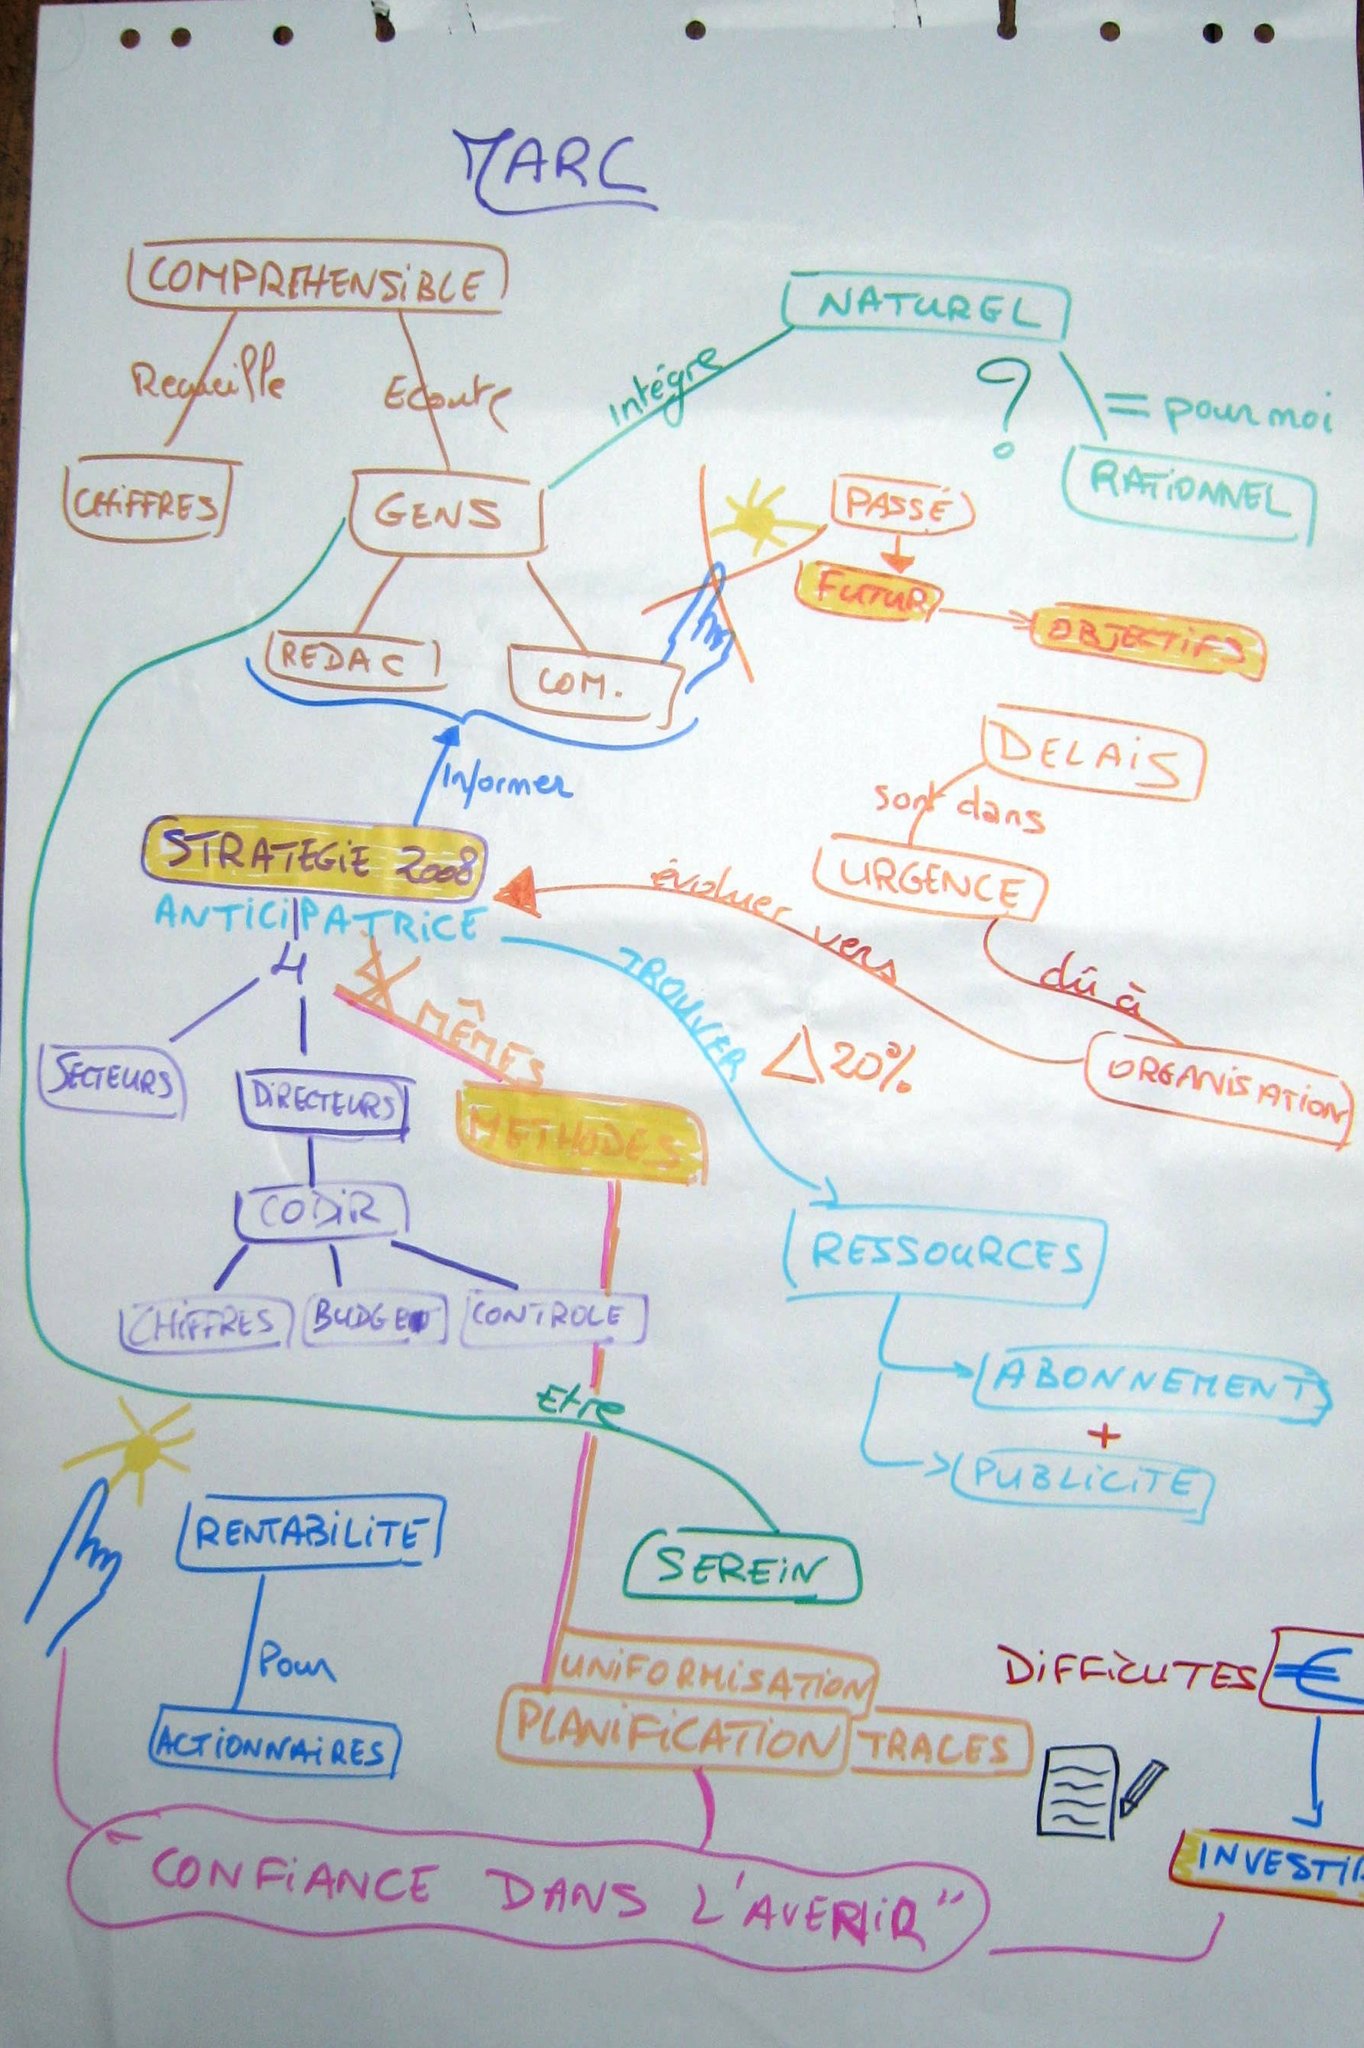 MARC
COMPREHENSIBLE
NATUREL
Recueille
Ecoute
Intégre
?
= pour moi
CHIFFRES
GENS
PASSÉ
RATIONNEL
FUTUR
OBJECTIFS
REDAC
COM.
DELAIS
Informer
son dans
STRATEGIE 2008
évoluer vers
URGENCE
ANTICIPATRICE
4
TROUVER
dû à
MÊMES
Δ 20%
SECTEURS
DIRECTEURS
ORGANISATION
METHODES
CODIR
RESSOURCES
CHIFFRES
BUDGET
CONTROLE
ABONNEMENTS
Etre
+
PUBLICITE
RENTABILITE
SEREIN
Pour
UNIFORMISATION
DIFFICUTES
€
ACTIONNAIRES
PLANIFICATION
TRACES
INVESTIR
"CONFIANCE DANS L'AVENIR"